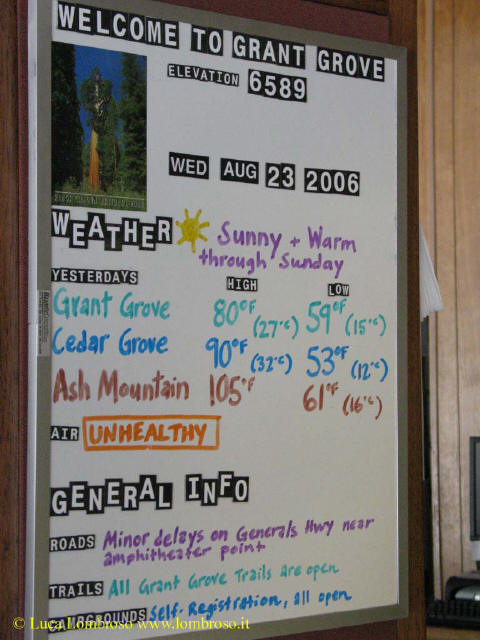 WELCOME TO GRANT GROVE
ELEVATION 6589
WED AUG 23 2006
WEATHER Sunny + Warm
through Sunday
YESTERDAYS HIGH LOW
Grant Grove 80°F (27°C) 59°F (15°C)
Cedar Grove 90°F (32°C) 53°F (12°C)
Ash Mountain 105°F 61°F (16°C)
AIR UNHEALTHY
GENERAL INFO
ROADS Minor delays on Generals Hwy near
amphitheater point
TRAILS All Grant Grove Trails are open
CAMPGROUNDS Self-Registration, all open
© Luca Lombroso www.lombroso.it